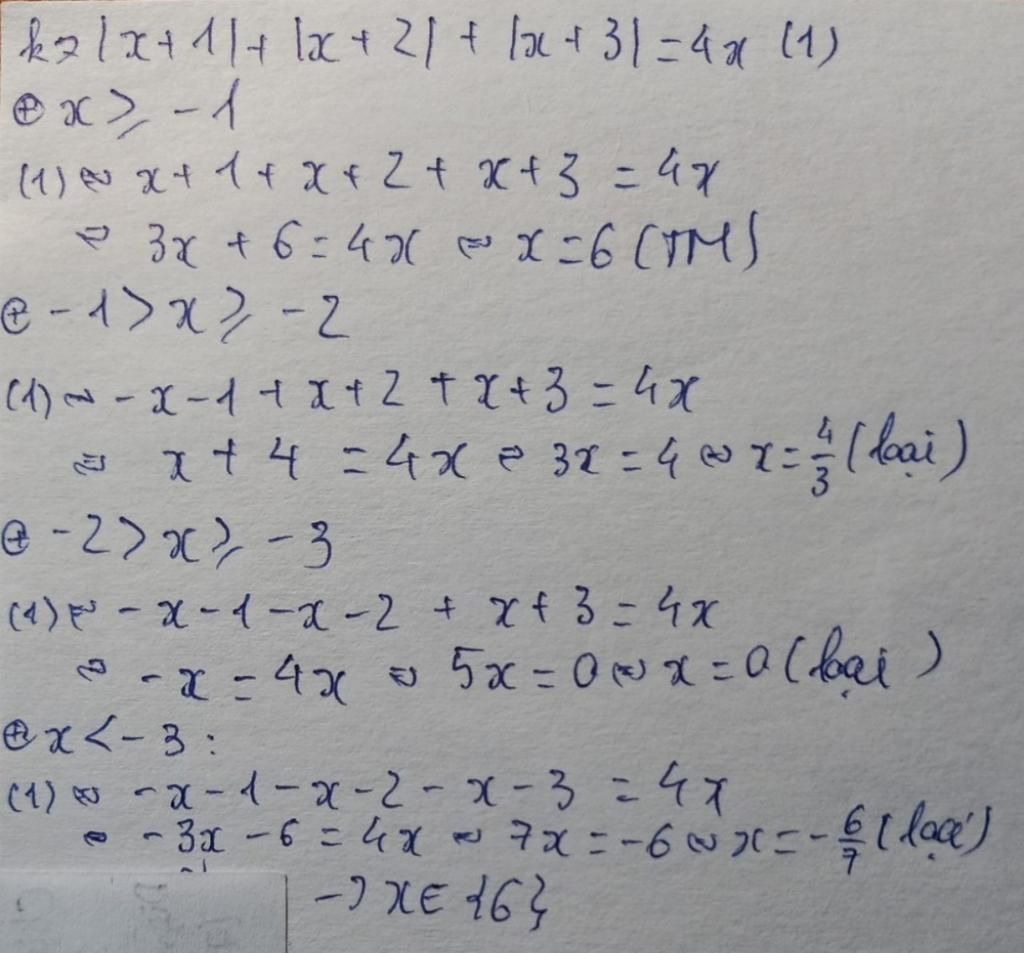 k> |x+1| + |x+2| + |x+3| = 4x (1)
⊕ x ≥ -1
(1) ⇔ x+1+x+2+x+3 = 4x
⇔ 3x + 6 = 4x ⇔ x = 6 (TM)
⊕ -1 > x ≥ -2
(1) ⇔ -x-1+x+2+x+3 = 4x
⇔ x + 4 = 4x ⇔ 3x = 4 ⇔ x = 4/3 (loại)
⊕ -2 > x ≥ -3
(1) ⇔ -x-1-x-2 + x+3 = 4x
⇔ -x = 4x ⇔ 5x = 0 ⇔ x = 0 (loại)
⊕ x < -3 :
(1) ⇔ -x-1-x-2-x-3 = 4x
⇔ -3x - 6 = 4x ⇔ 7x = -6 ⇔ x = -6/7 (loại)
→ x ∈ {6}